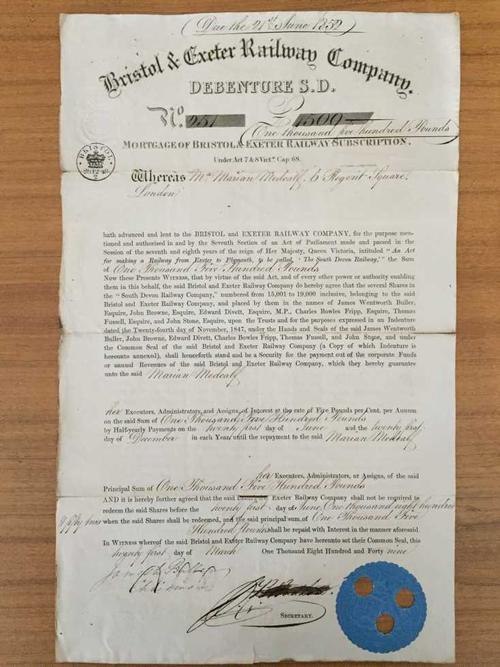 (Due the 21st June 1852)
Bristol & Exeter Railway Company.
DEBENTURE S.D.
No. 251 £1500
One thousand five hundred Pounds
MORTGAGE OF BRISTOL & EXETER RAILWAY SUBSCRIPTION.
Under Act 7 & 8 Vict. Cap 68.
BRISTOL
Whereas Mrs Marian Medcalf 6 Regent Square,
London
hath advanced and lent to the BRISTOL and EXETER RAILWAY COMPANY, for the purpose men-
tioned and authorised in and by the Seventh Section of an Act of Parliament made and passed in the
Session of the seventh and eighth years of the reign of Her Majesty, Queen Victoria, intituled "An Act
for making a Railway from Exeter to Plymouth, to be called, 'The South Devon Railway,'" the Sum
of One Thousand Five Hundred Pounds
Now these Presents WITNESS, that by virtue of the said Act, and of every other power or authority enabling
them in this behalf, the said Bristol and Exeter Railway Company do hereby agree that the several Shares in
the "South Devon Railway Company," numbered from 15,001 to 19,000 inclusive, belonging to the said
Bristol and Exeter Railway Company, and placed by them in the names of James Wentworth Buller,
Esquire, John Browne, Esquire, Edward Divett, Esquire, M.P., Charles Bowles Fripp, Esquire, Thomas
Fussell, Esquire, and John Stone, Esquire, upon the Trusts and for the purposes expressed in an Indenture
dated the Twenty-fourth day of November, 1847, under the Hands and Seals of the said James Wentworth
Buller, John Browne, Edward Divett, Charles Bowles Fripp, Thomas Fussell, and John Stone, and under
the Common Seal of the said Bristol and Exeter Railway Company (a Copy of which Indenture is
hereunto annexed), shall henceforth stand and be a Security for the payment out of the corporate Funds
or annual Revenues of the said Bristol and Exeter Railway Company, which they hereby guarantee
unto the said Marian Medcalf
her Executors, Administrators, and Assigns, of Interest at the rate of Five Pounds per Cent. per Annum
on the said Sum of One Thousand Five Hundred Pounds
by Half-yearly Payments on the Twenty first day of June and the twenty first
day of December in each Year until the repayment to the said Marian Medcalf
her Executors, Administrators, or Assigns, of the said
Principal Sum of One Thousand Five Hundred Pounds
AND it is hereby further agreed that the said Exeter Railway Company shall not be required to
redeem the said Shares before the twenty first day of June One thousand eight hundred
& fifty two when the said Shares shall be redeemed, and the said principal sum of One Thousand Five
Hundred Pounds shall be repaid with Interest in the manner aforesaid.
IN WITNESS whereof the said Bristol and Exeter Railway Company have hereunto set their Common Seal, this
twenty first day of March One Thousand Eight Hundred and Forty nine
SECRETARY.